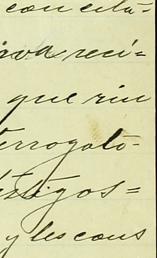 con citá-
iva reci-
que rin
terrogato-
testigos=
y les cons